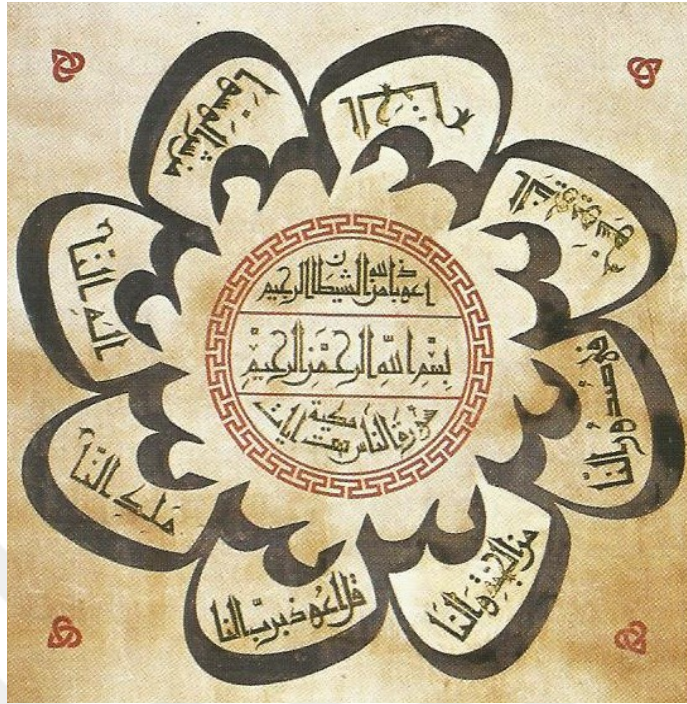 اعوذ بالله من الشيطان الرجيم
بِسْمِ اللّٰهِ الرَّحْمٰنِ الرَّحِيْمِ
سورة الناس مكية ايات
قل اعوذ بربّ الناس
مَلِكِ النّاس
اله الناس
من شر الوسواس
الخناس
الذي يوسوس
في صدور النّاس
من الجنة والناس